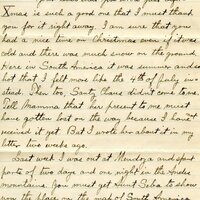 Xmas is such a good one that I must thank
you for it right away. I am sure that you
had a nice time on Christmas even if it was
cold and there was much snow on the ground.
Here in South America it was summer and so
hot that I felt more like the 4th of July in-
stead. Then too, Santy Claus didn't come to me.
Tell Mamma that her present to me must
have gotten lost on the way because I haven't
received it yet. But I wrote her about it in my
letter two weeks ago.
Last week I was out at Mendoza and spent
parts of two days and one night in the Andes
mountains. You must get Aunt Selba to show
you the place on the map of South America